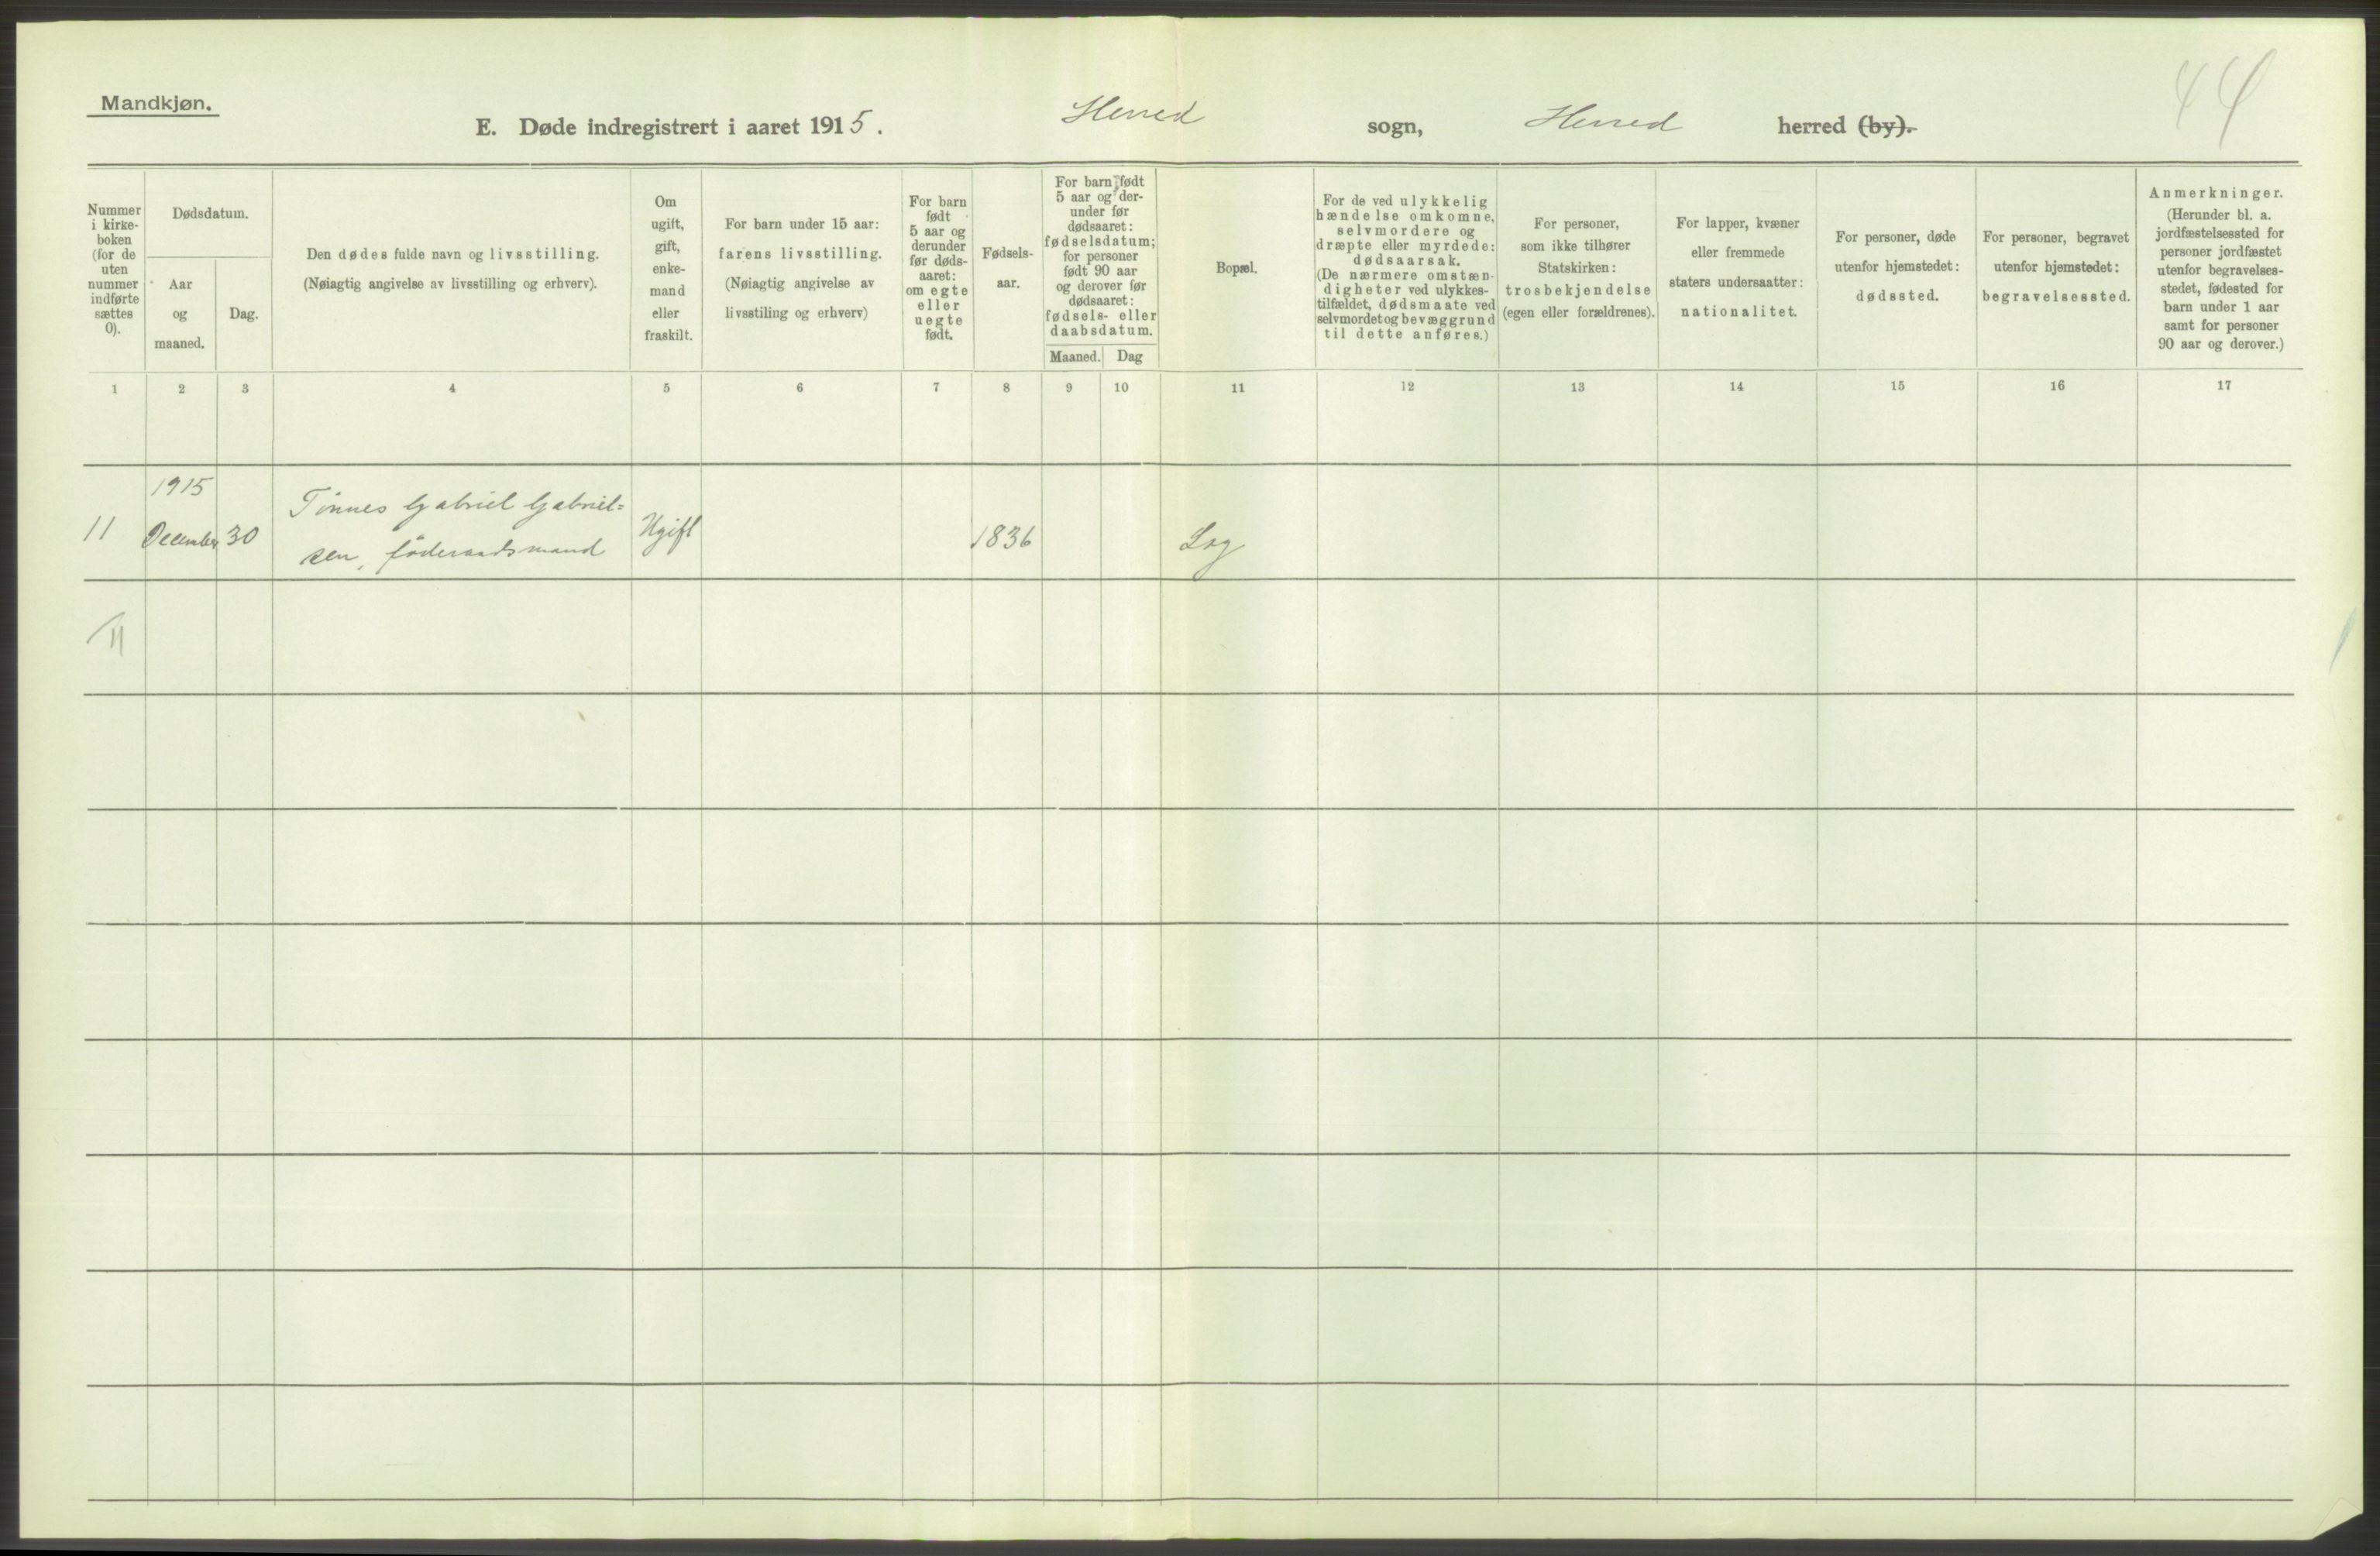 Mandkjøn.
E. Døde indregistrert i aaret 1915. Herred sogn, Herred herred (by).
44
Nummer
i kirke-
boken
(for de
uten
nummer
indførte
sættes
0).
Dødsdatum.
Aar
og
maaned.
Dag.
Den dødes fulde navn og livsstilling.
(Nøiagtig angivelse av livsstilling og erhverv).
Om
ugift,
gift,
enke-
mand
eller
fraskilt.
For barn under 15 aar:
farens livsstilling.
(Nøiagtig angivelse av
livsstiling og erhverv)
For barn
født
5 aar og
derunder
før døds-
aaret:
om egte
eller
uegte
født.
Fødsels-
aar.
For barn født
5 aar og der-
under før
dødsaaret:
fødselsdatum;
for personer
født 90 aar
og derover før
dødsaaret:
fødsels- eller
daabsdatum.
Maaned. Dag
Bopæl.
For de ved ulykkelig
hændelse omkomne,
selvmordere og
dræpte eller myrdede:
dødsaarsak.
(De nærmere omstæn-
digheter ved ulykkes-
tilfældet, dødsmaate ved
selvmordet og bevæggrund
til dette anføres.)
For personer,
som ikke tilhører
Statskirken:
trosbekjendelse
(egen eller forældrenes).
For lapper, kvæner
eller fremmede
staters undersaatter:
nationalitet.
For personer, døde
utenfor hjemstedet:
dødssted.
For personer, begravet
utenfor hjemstedet:
begravelsessted.
Anmerkninger.
(Herunder bl. a.
jordfæstelsessted for
personer jordfæstet
utenfor begravelses-
stedet, fødested for
barn under 1 aar
samt for personer
90 aar og derover.)
1 2 3 4 5 6 7 8 9 10 11 12 13 14 15 16 17
1915
Tönnes Gabriel Gabriel=
11 December 30 sen, föderaadsmand Ugift 1836 Log
11